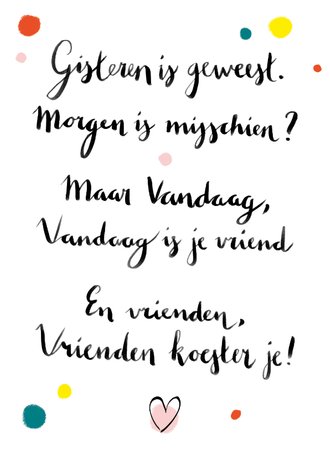 Gisteren is geweest.
Morgen is misschien?
Maar Vandaag,
Vandaag is je vriend
En vrienden,
Vrienden koester je!